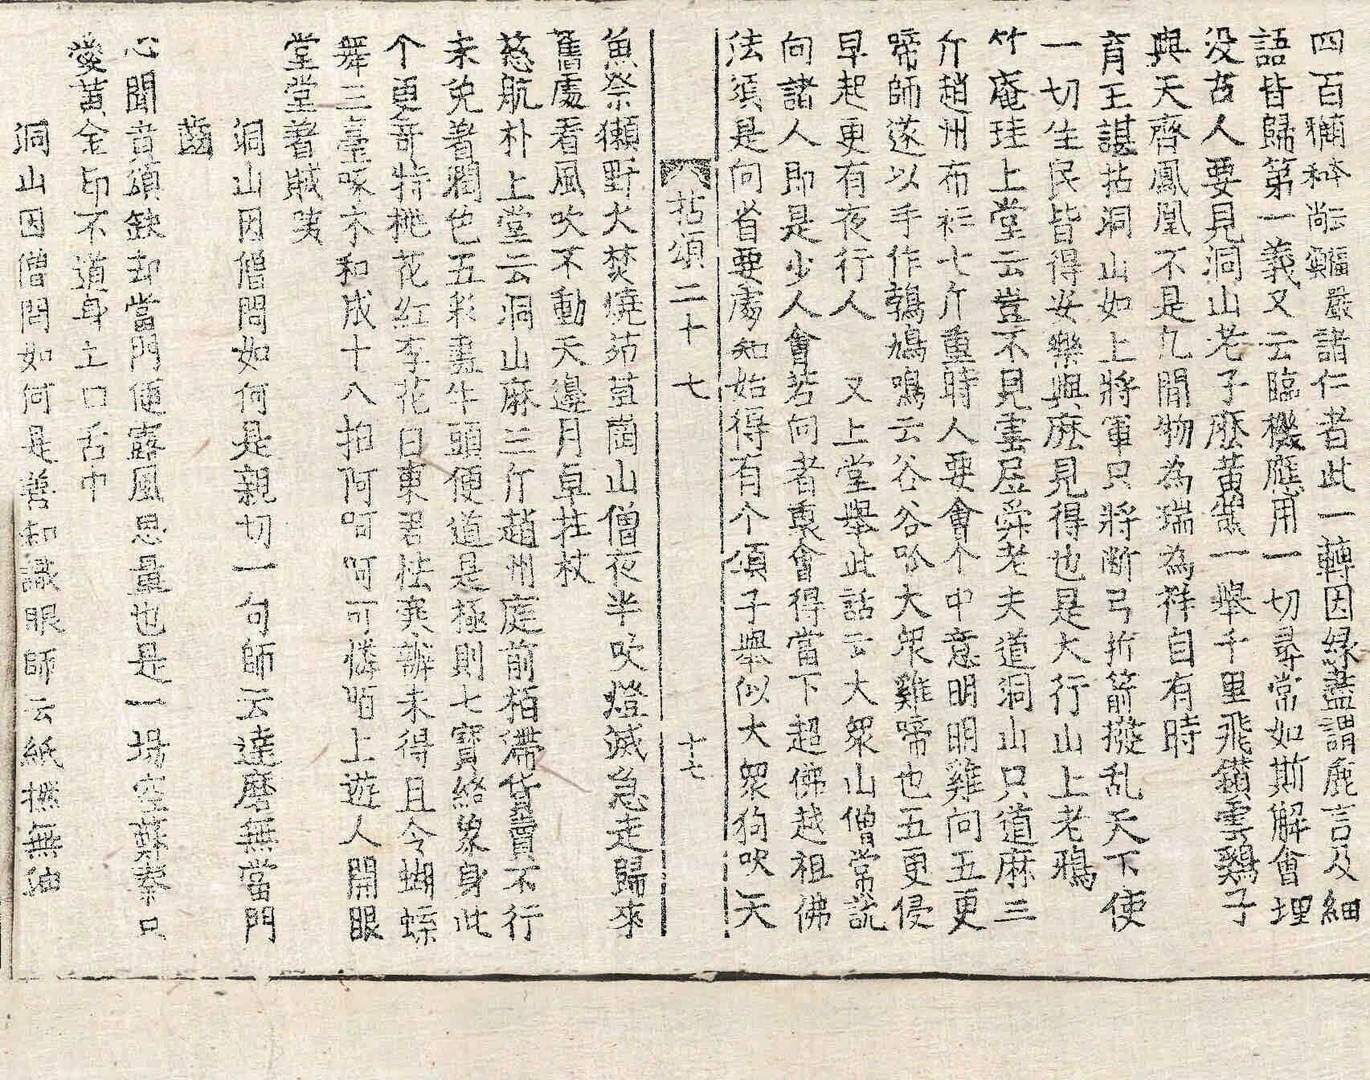 四百獼和尚云麤嚴諸仁者此一轉因緣蓋謂麁言及細
語皆歸第一義又云臨機應用一切尋常如斯解會埋
没古人要見洞山老子麽黃鵠一舉千里飛鑽雲鷂子
與天齊鳳凰不是凡間物為瑞為祥自有時
育王諶拈洞山如上將軍只將断弓折箭撥乱天下使
一切生民皆得安樂與麽見得也是大行山上老鴉
竹庵珪上堂云豈不見雲居舜老夫道洞山只道麻三
斤趙州布衫七斤重時人要會个中意明明雞向五更
啼師遂以手作鵓鳩鳴云谷谷呱大眾雞啼也五更侵
早起更有夜行人 又上堂舉此話云大眾山僧常說
向諸人即是少人會若向者裏會得當下超佛越祖佛
法須是向省要處知始得有个頌子舉似大眾狗吠天
拈頌二十七 十七
魚祭獺野火焚燒茆苴崗山僧夜半吹燈滅急走歸來
舊處看風吹不動天邊月卓拄杖
慈航朴上堂云洞山麻三斤趙州庭前栢滯貨賣不行
未免着潤色五彩畫牛頭便道是極則七寶絡象身此
个更奇特桃花紅李花白東君怯寒辦未得且令蝴蝶
舞三臺啄木和成十八拍阿呵呵可憐陌上遊人開眼
堂堂着賊夷
洞山因僧問如何是親切一句師云達磨無當門
齒
心聞音頌缺却當門便露風思量也是一場空蘇秦只
愛黃金印不道身立口舌中
洞山因僧問如何是善知識眼師云紙撚無油